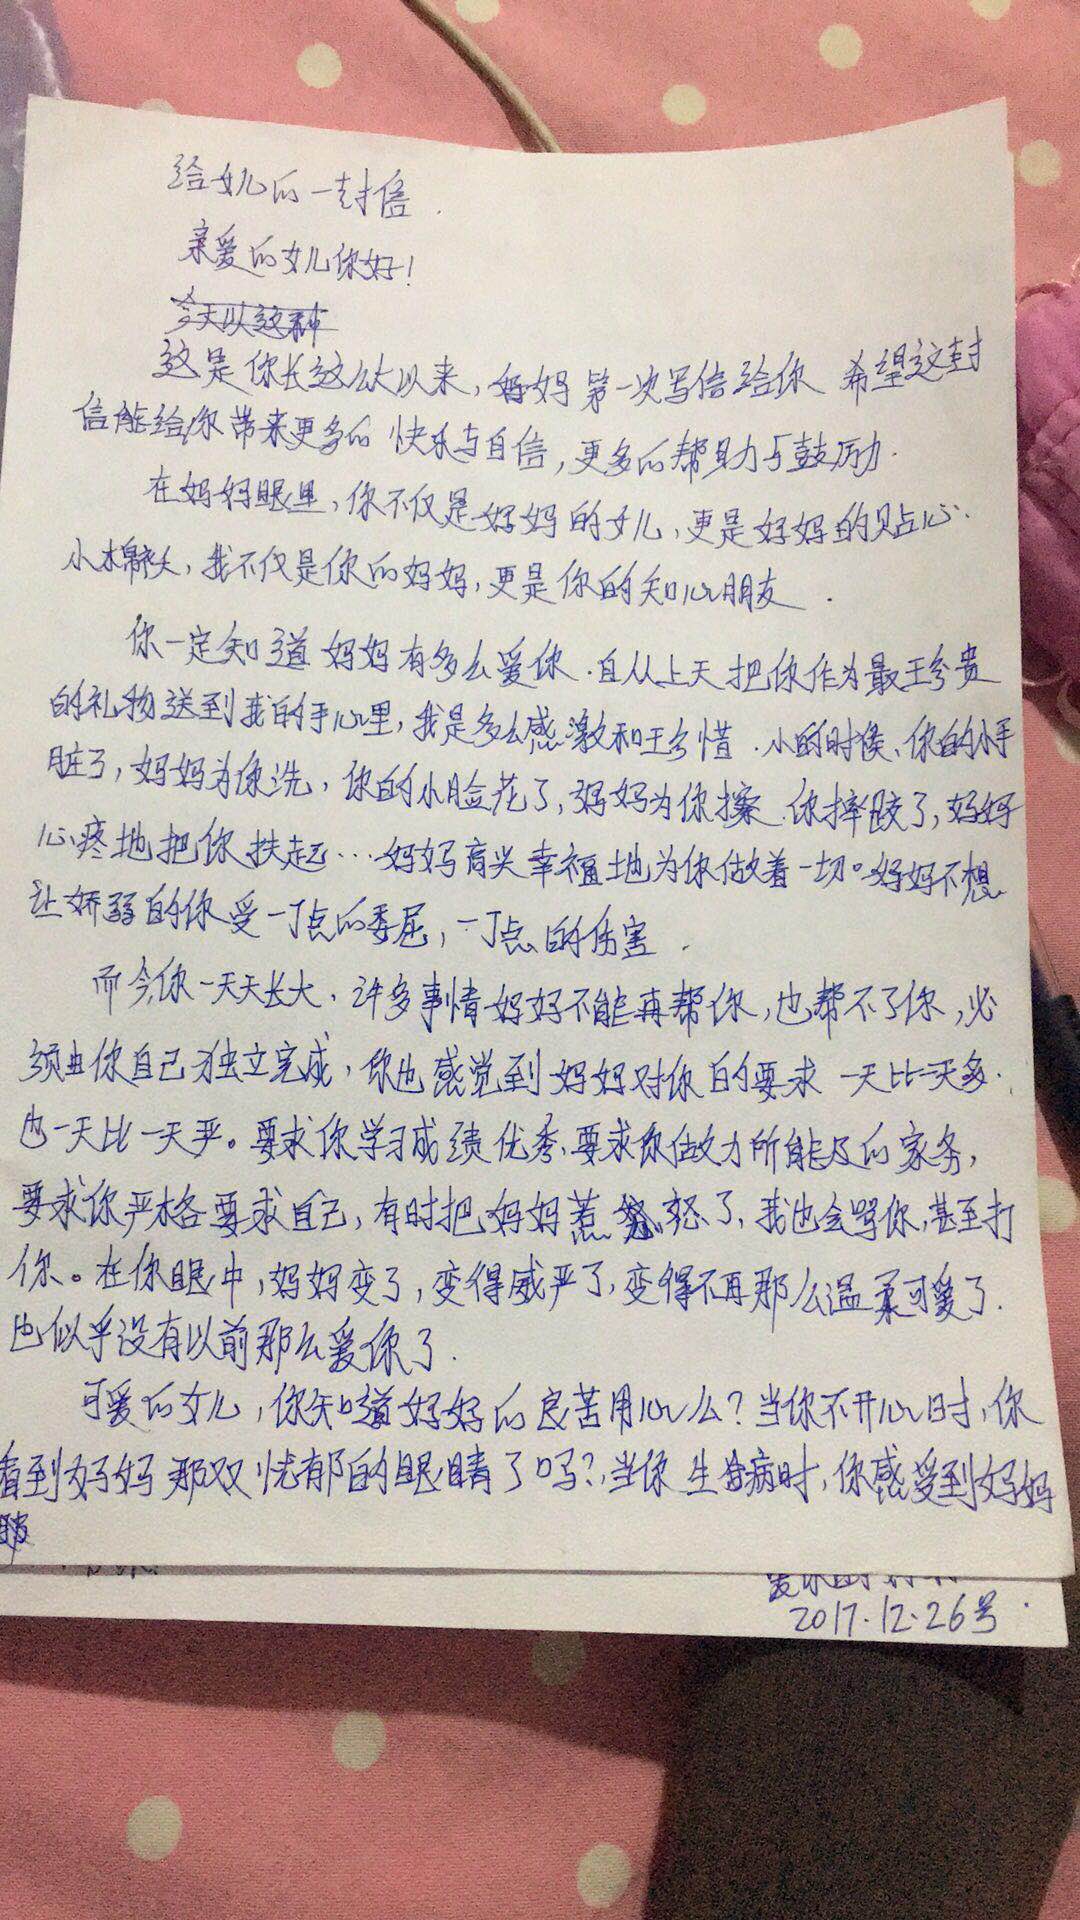 给女儿的一封信.
亲爱的女儿你好!
今天以这种
这是你长这么大以来，妈妈第一次写信给你 希望这封
信能给你带来更多的快乐与自信，更多的帮助与鼓励.
在妈妈眼里，你不仅是妈妈的女儿，更是妈妈的贴心
小棉袄，我不仅是你的妈妈，更是你的知心朋友.
你一定知道妈妈有多么爱你.自从上天把你作为最珍贵
的礼物送到我的手心里，我是多么感激和珍惜.小的时候、你的小手
脏了，妈妈为你洗，你的小脸花了，妈妈为你擦.你摔跤了，妈妈
心疼地把你扶起…妈妈高兴幸福地为你做着一切。妈妈不想
让娇弱的你受一丁点的委屈，一丁点的伤害.
而今你一天天长大、许多事情妈妈不能再帮你，也帮不了你，必
须由你自己独立完成，你也感觉到妈妈对你的要求一天比一天多.
也一天比一天严。要求你学习成绩优秀、要求你做力所能及的家务，
要求你严格要求自己，有时把妈妈惹怒了，我也会骂你,甚至打
你。在你眼中，妈妈变了，变得威严了，变得不再那么温柔可爱了.
也似乎没有以前那么爱你了.
可爱的女儿，你知道妈妈的良苦用心么?当你不开心时，你
看到妈妈那双忧郁的眼睛了吗?当你生病时，你感受到妈妈
爱你的妈妈
2017.12.26号